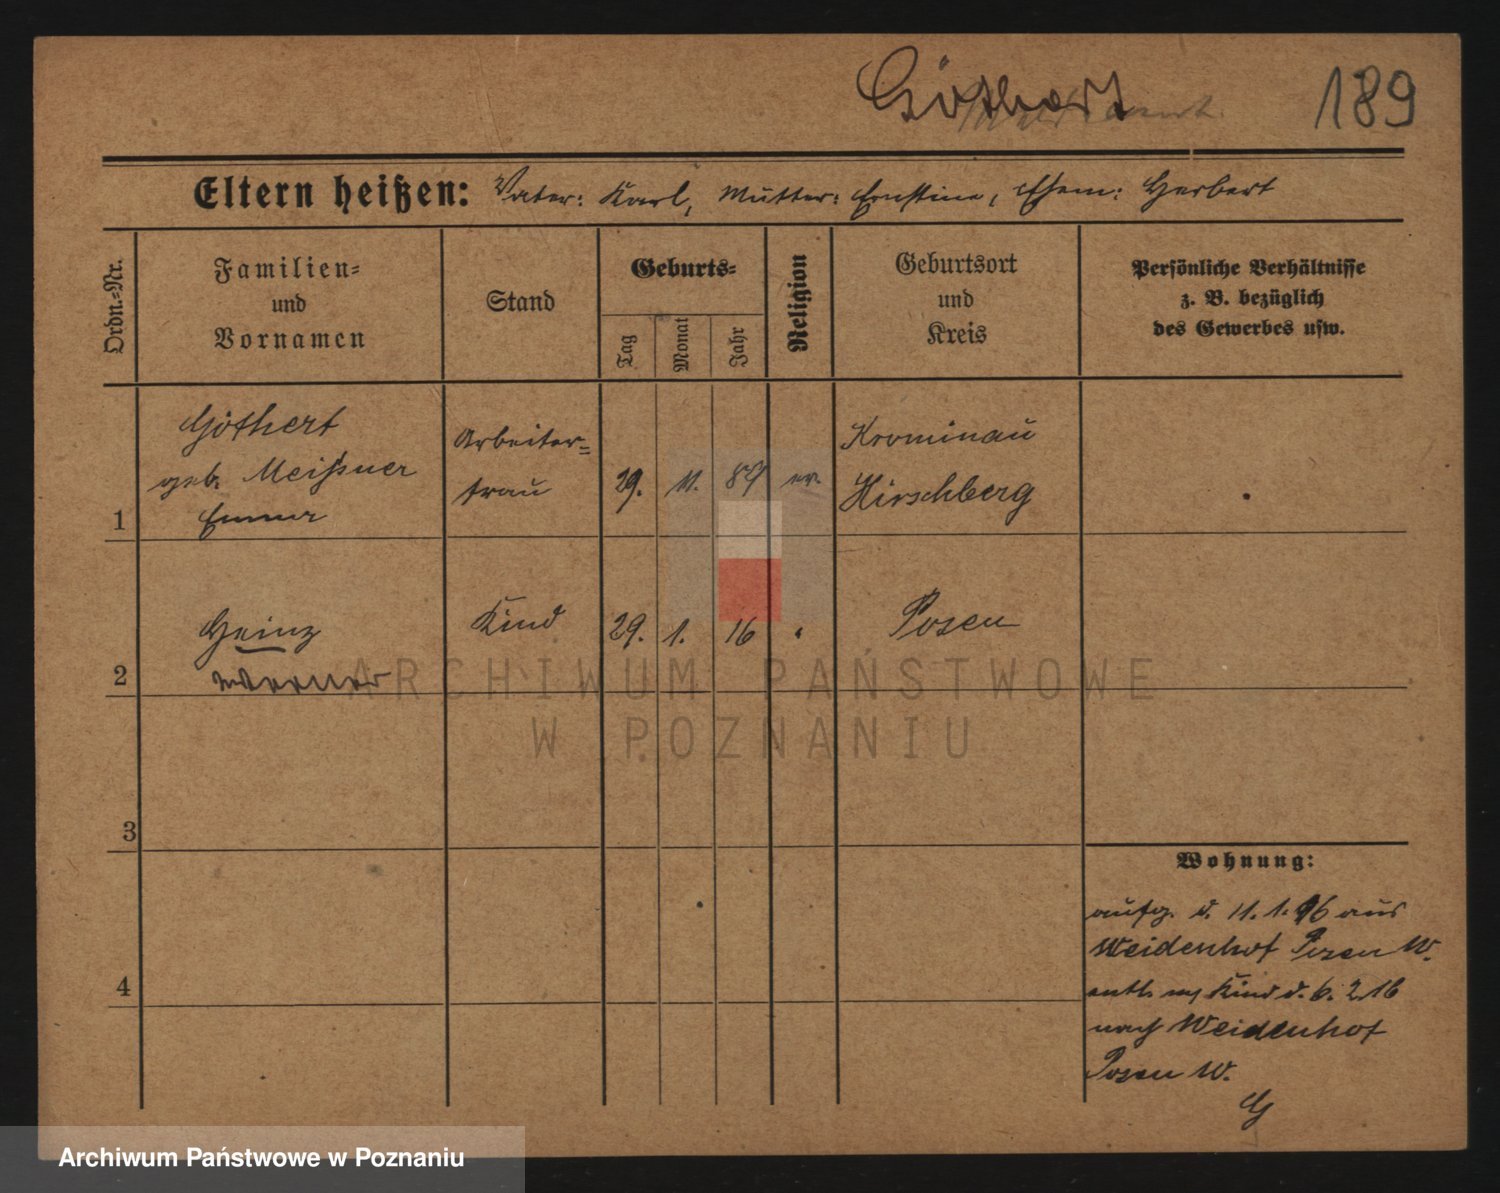 Göthert
189
Eltern heißen: Vater: Karl, Mutter: Ernstine, Ehem: Herbert
Ordn.=Nr.
Familien=
und
Vornamen
Stand
Geburts=
Tag
Monat
Jahr
Religion
Geburtsort
und
Kreis
Persönliche Verhältnisse
z. B. bezüglich
des Gewerbes usw.
1
Göthert
geb. Meißner
Emma
Arbeiter=
frau
29. 11. 87 ev.
Krominau
Hirschberg
2
Heinz
Werner
Kind
29. 1. 16
Posen
3
4
Wohnung:
aufg. d. 11. 1. 16 aus
Weidenhof Posen W.
entl. m Kind d. 6. 2 16
nach Weidenhof
Posen W.
G
ARCHIWUM PAŃSTWOWE
W POZNANIU
Archiwum Państwowe w Poznaniu